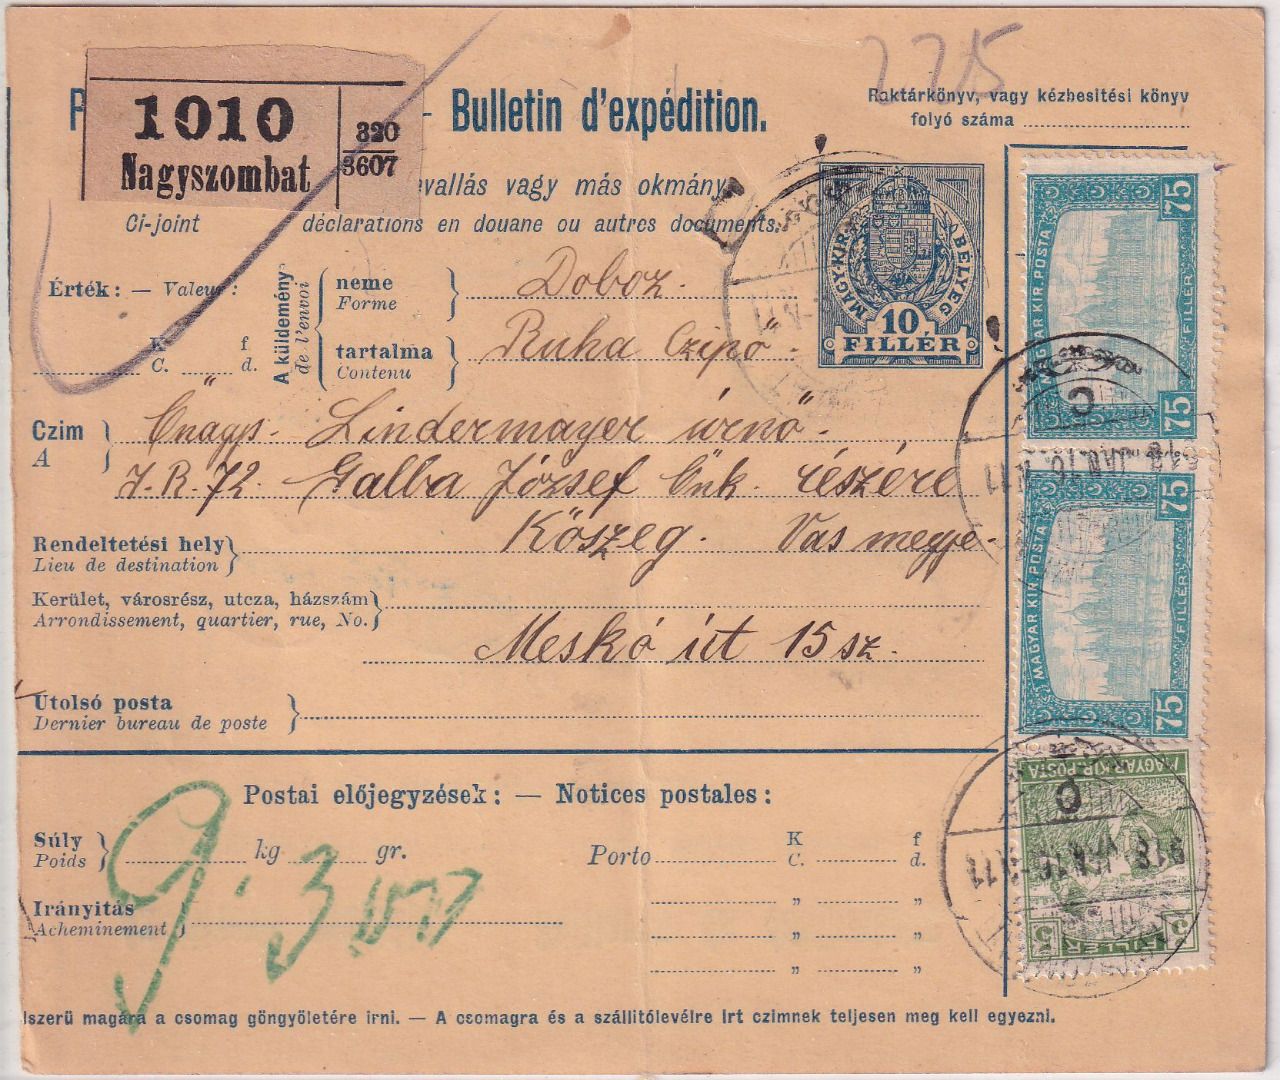 225
Bulletin d'expédition.
Raktárkönyv, vagy kézbesitési könyv
folyó száma
1010
Nagyszombat
320
3607
vallás vagy más okmány
Ci-joint déclarations en douane ou autres documents.
Érték: — Valeur:
K f
C. d.
A küldemény
de l'envoi
neme
Forme
Doboz.
tartalma
Contenu
Ruha Czipő.
MAGY. KIR. BÉLYEG
10
FILLÉR
Czim
A
Önagys. Lindermayer úrnő.
I.R. 72. Galba József Önk. részére
Rendeltetési hely
Lieu de destination
Kőszeg. Vas megye.
Kerület, városrész, utcza, házszám
Arrondissement, quartier, rue, No.
Meskó út 15 sz.
Utolsó posta
Dernier bureau de poste
Postai előjegyzések: — Notices postales:
Súly
Poids
kg gr.
Porto
K f
C. d.
" "
" "
" "
9. 300
Irányitás
Acheminement
szerü magára a csomag göngyöletére irni. — A csomagra és a szállitólevélre irt czimnek teljesen meg kell egyezni.
75
MAGYAR KIR. POSTA
FILLÉR
75
918 JAN. 16
75
MAGYAR KIR. POSTA
FILLÉR
75
MAGYAR KIR. POSTA
918 JAN. 16
FILLÉR